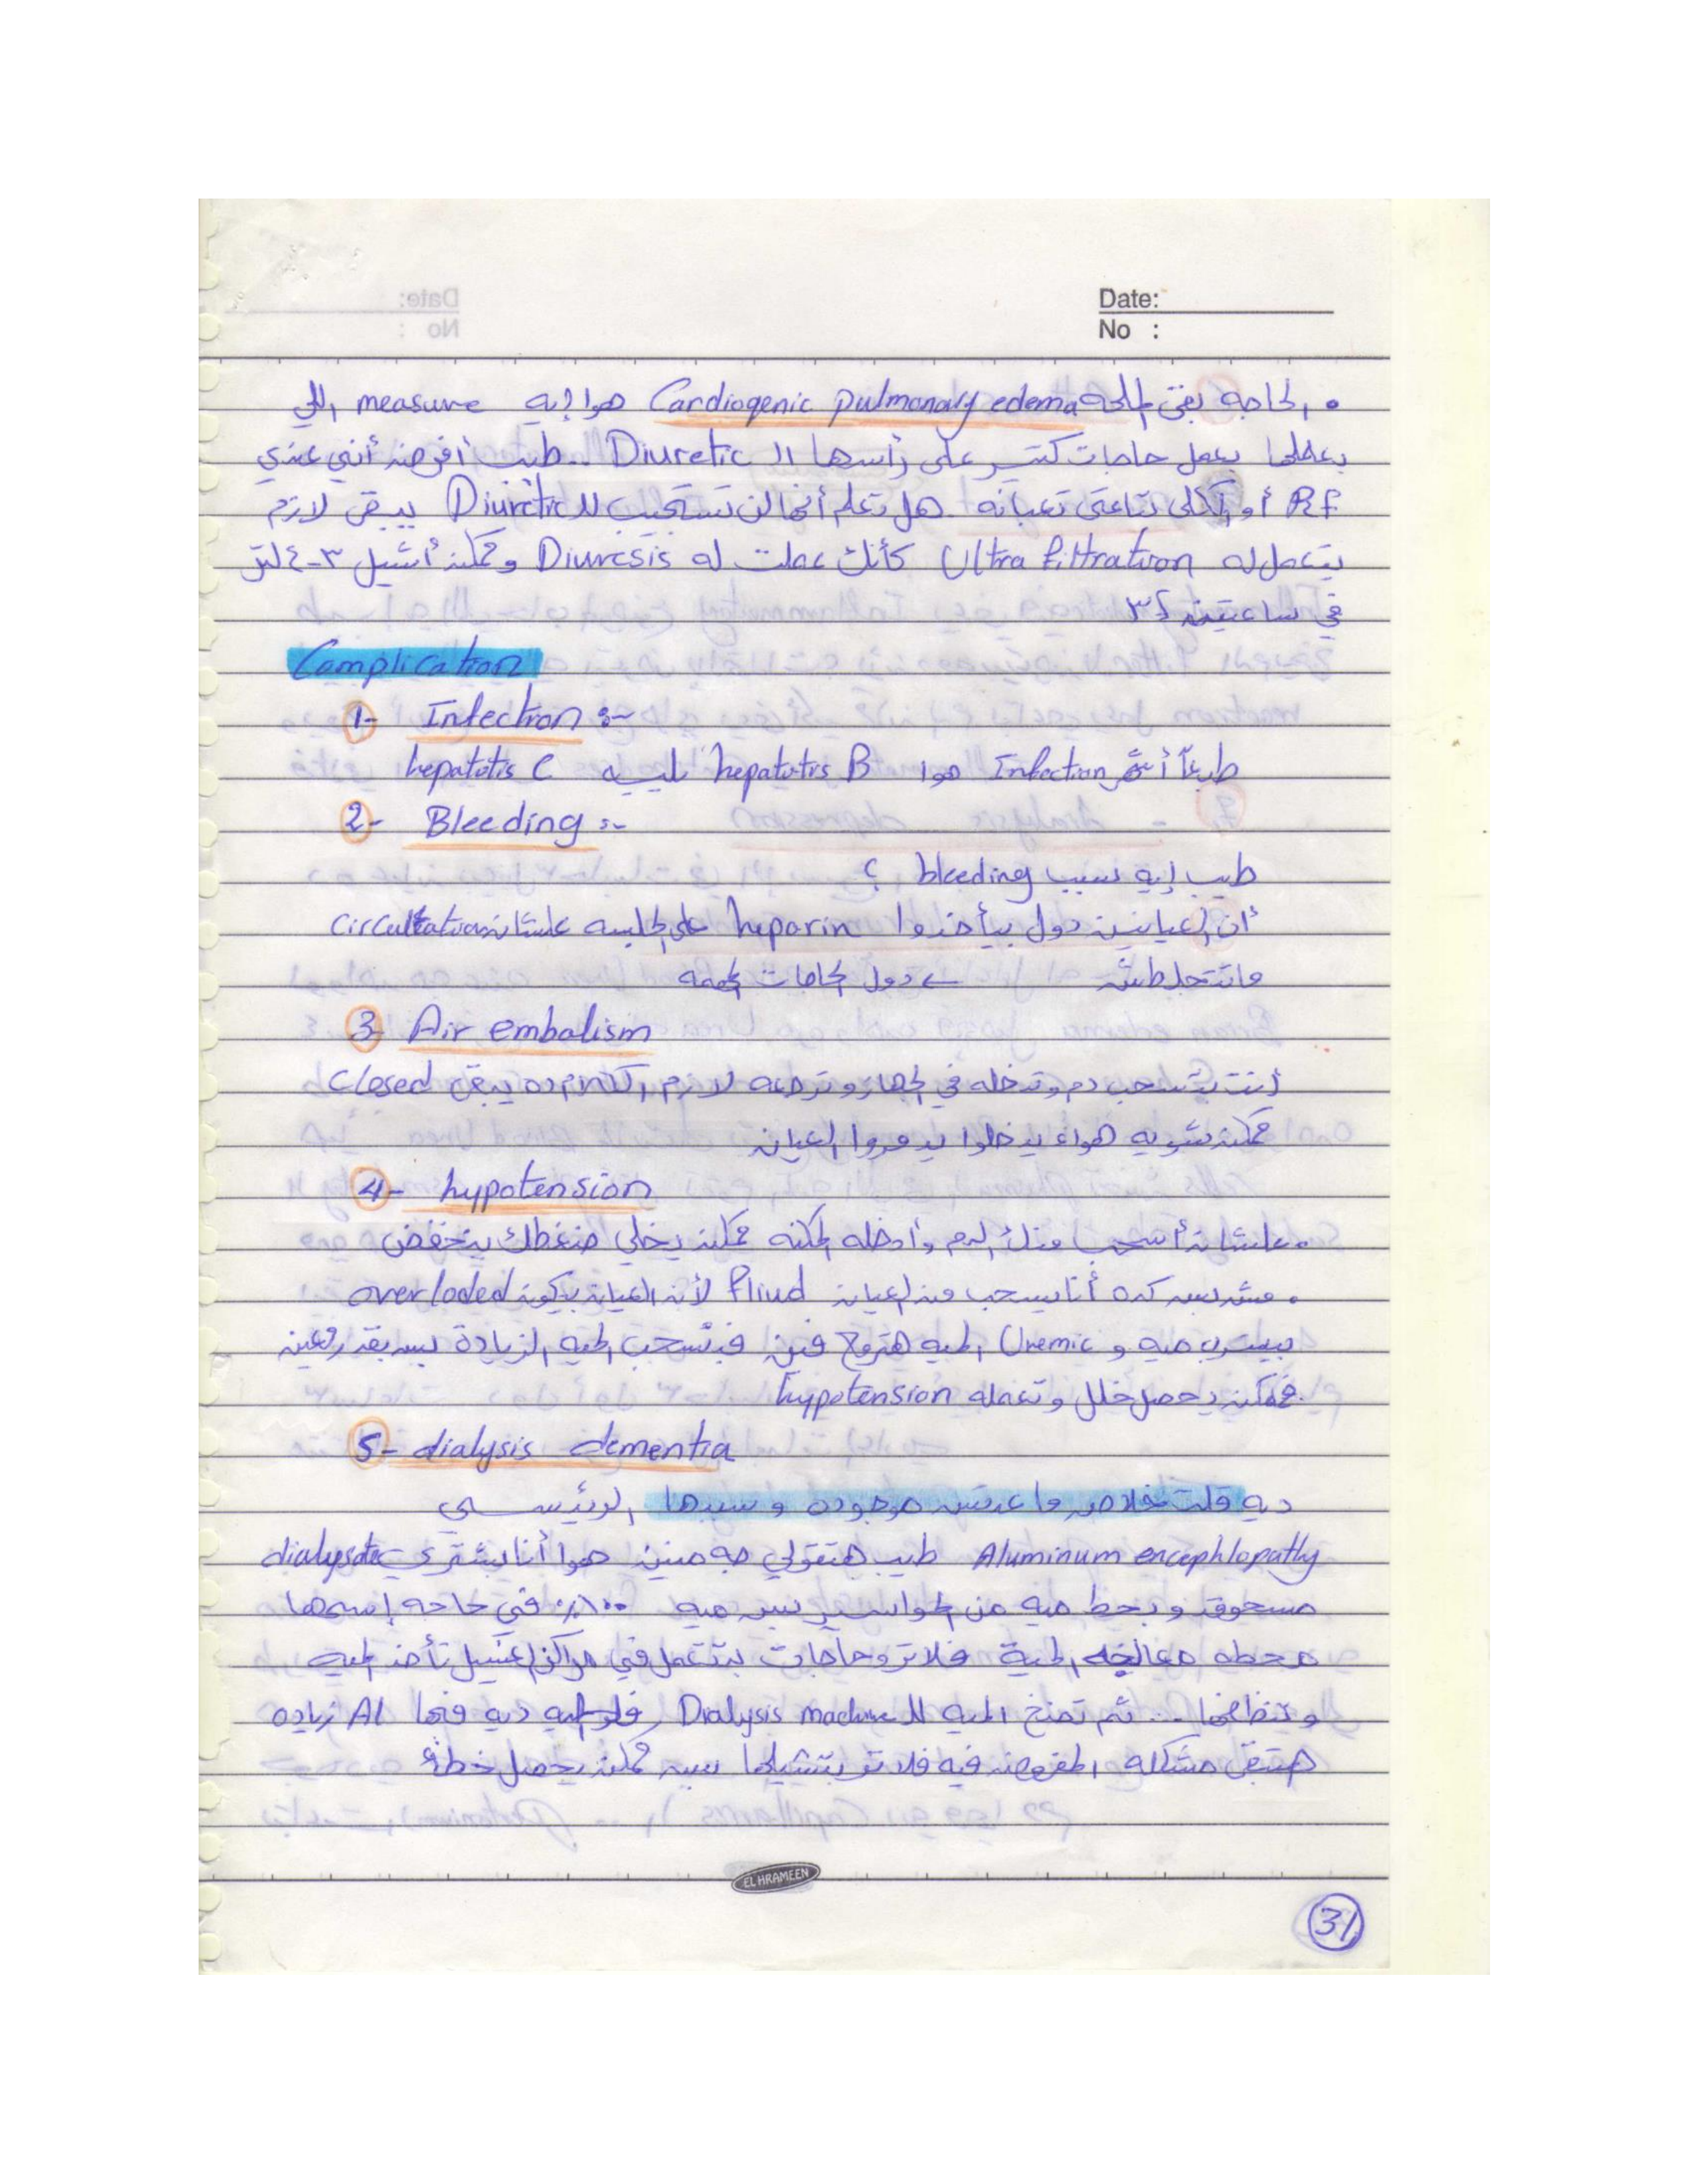 Date:
No :
• الحاجه بقى الملحه Cardiogenic pulmonary edema هوا إيه measure اللي
بعملها بعمل حاجات كتير على رأسها الـ Diuretic .. طيب أفرضه أني عندي
RF أو الكلى بتاعتي تعبانه هل تعلم أنها لن تستجيب للـ Diuretic يبقى لازم
يتعمل له Ultra filtration كأنك عملت له Diuresis وممكن أشيل ٣-٤ لتر
في ساعتين ٣
Complication
1- Infection :-
طبعاً أشهر Infection هوا hepatitis B يليه hepatitis C
2- Bleeding :-
طيب إيه سبب bleeding ؟
أن العيانين دول بيأخذوا heparin على الجلسه علشان circulation
ماتتجلطش ← دول الحاجات المهمه
3- Air embolism
أنت بتسحب دم وتدخله في الجهاز وترجعه لازم الـ ده يبقى closed
ممكن شويه هواء يدخلوا يدمروا العيان
4- hypotension
• علشان أسحب منك الدم وأدخله المكنه ممكن يخلي ضغطك ينخفض
• مش بس كده أنا بسحب من العيان fliud لأن العيان بيكون overloded
بيشرب ميه و Uremic الميه هتروح فين فبنسحب الميه الزيادة بس بقدر معين
فممكن يحصل خلل وتعمله hypotension
5- dialysis dementia
ديه قلت خلاص ما عدتش موجوده وسببها الرئيسي
Aluminum encephlopathy طيب هتقولي جه منين هوا أنا بشتري dialysate
مسحوق وبحط ميه من المواسير بس ميه ١٠٠٪ في حاجه إسمها
محطه معالجه الميه فلاتر وحاجات بتتعمل في مراكز الغسيل تأخذ الميه
وتنظفها ... ثم تضخ الميه للـ Dialysis machine فلو الميه ديه فيها Al زياده
هتبقى مشكله المفروض فيه فلاتر بتشيلها بس ممكن يحصل خطأ
EL HRAMEEN
31